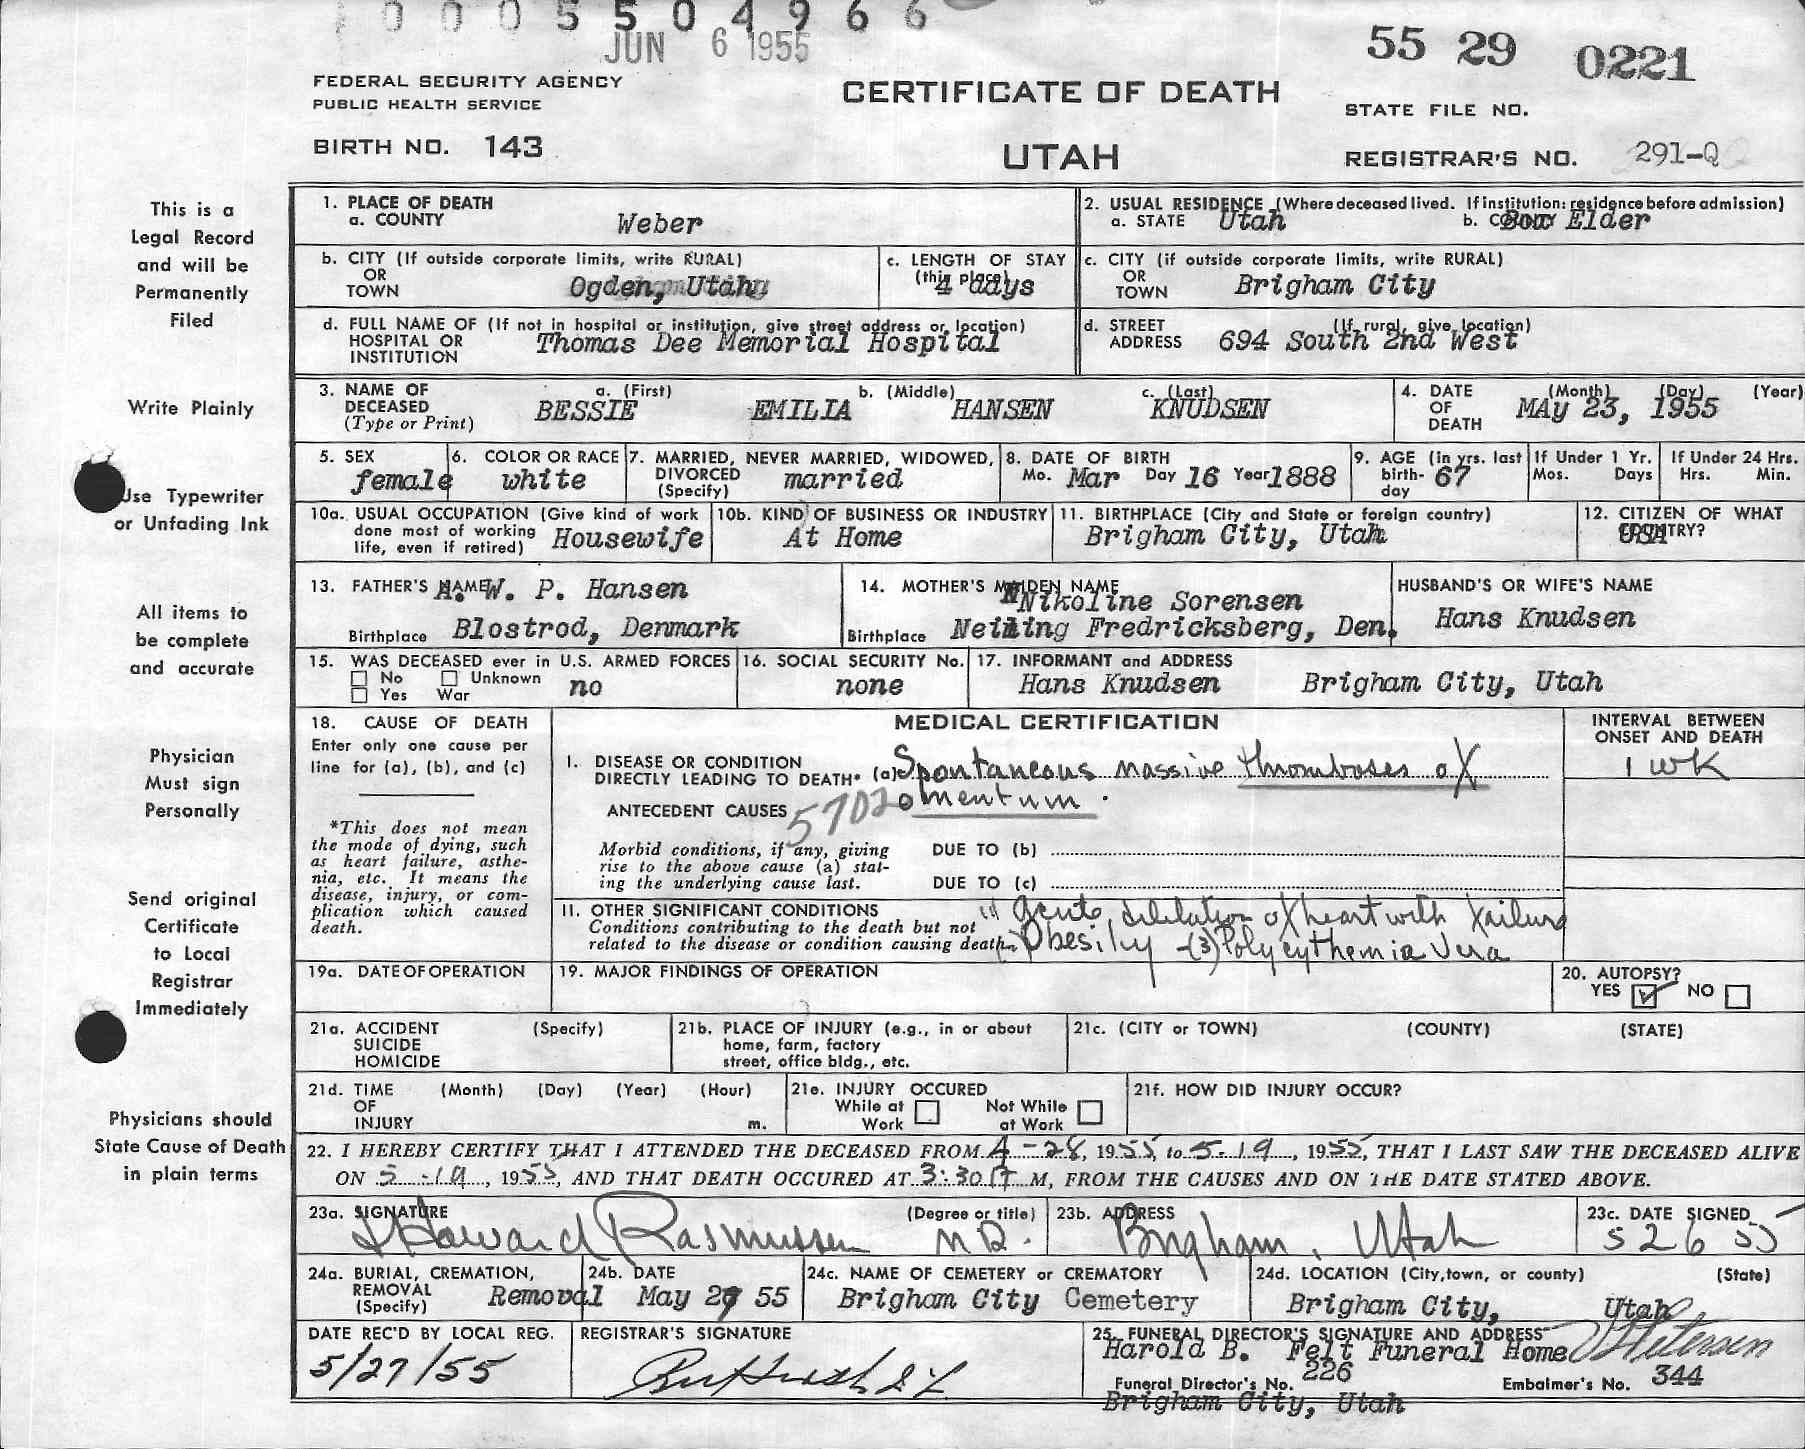 0 0 0 5 5 0 4 9 6 6
JUN 6 1955
55 29 0221
FEDERAL SECURITY AGENCY
PUBLIC HEALTH SERVICE
CERTIFICATE OF DEATH
STATE FILE NO.
BIRTH NO. 143
UTAH
REGISTRAR'S NO. 291-Q
This is a
Legal Record
and will be
Permanently
Filed
Write Plainly
Use Typewriter
or Unfading Ink
All items to
be complete
and accurate
Physician
Must sign
Personally
Send original
Certificate
to Local
Registrar
Immediately
Physicians should
State Cause of Death
in plain terms
1. PLACE OF DEATH
a. COUNTY Weber
2. USUAL RESIDENCE (Where deceased lived. If institution: residence before admission)
a. STATE Utah b. COUNTY Box Elder
b. CITY (If outside corporate limits, write RURAL)
OR
TOWN Ogden, Utah
c. LENGTH OF STAY
(this place) 4 days
c. CITY (if outside corporate limits, write RURAL)
OR
TOWN Brigham City
d. FULL NAME OF (If not in hospital or institution, give street address or location)
HOSPITAL OR
INSTITUTION Thomas Dee Memorial Hospital
d. STREET (If rural, give location)
ADDRESS 694 South 2nd West
3. NAME OF a. (First) b. (Middle) c. (Last)
DECEASED BESSIE EMILIA HANSEN KNUDSEN
(Type or Print)
4. DATE (Month) (Day) (Year)
OF MAy 23, 1955
DEATH
5. SEX
female
6. COLOR OR RACE
white
7. MARRIED, NEVER MARRIED, WIDOWED,
DIVORCED married
(Specify)
8. DATE OF BIRTH
Mo. Mar Day 16 Year 1888
9. AGE (in yrs. last
birth- 67
day
If Under 1 Yr.
Mos. Days
If Under 24 Hrs.
Hrs. Min.
10a. USUAL OCCUPATION (Give kind of work
done most of working
life, even if retired) Housewife
10b. KIND OF BUSINESS OR INDUSTRY
At Home
11. BIRTHPLACE (City and State or foreign country)
Brigham City, Utah
12. CITIZEN OF WHAT
COUNTRY? USA
13. FATHER'S NAME A. W. P. Hansen
Birthplace Blostrod, Denmark
14. MOTHER'S MAIDEN NAME
Nikoline Sorensen
Birthplace Neiling Fredricksberg, Den.
HUSBAND'S OR WIFE'S NAME
Hans Knudsen
15. WAS DECEASED ever in U.S. ARMED FORCES
No Unknown
Yes War no
16. SOCIAL SECURITY No.
none
17. INFORMANT and ADDRESS
Hans Knudsen Brigham City, Utah
18. CAUSE OF DEATH
Enter only one cause per
line for (a), (b), and (c)
*This does not mean
the mode of dying, such
as heart failure, asthe-
nia, etc. It means the
disease, injury, or com-
plication which caused
death.
MEDICAL CERTIFICATION
INTERVAL BETWEEN
ONSET AND DEATH
I. DISEASE OR CONDITION
DIRECTLY LEADING TO DEATH* (a) Spontaneous massive thromboses of
1 wk
omentum.
ANTECEDENT CAUSES 5702
Morbid conditions, if any, giving
rise to the above cause (a) stat-
ing the underlying cause last.
DUE TO (b)
DUE TO (c)
II. OTHER SIGNIFICANT CONDITIONS
Conditions contributing to the death but not
related to the disease or condition causing death.
(1) Acute dilelation of heart with failure
Obesity -(3) Polycythemia Vera
19a. DATE OF OPERATION
19. MAJOR FINDINGS OF OPERATION
20. AUTOPSY?
YES ✓ NO
21a. ACCIDENT (Specify)
SUICIDE
HOMICIDE
21b. PLACE OF INJURY (e.g., in or about
home, farm, factory
street, office bldg., etc.
21c. (CITY or TOWN) (COUNTY) (STATE)
21d. TIME (Month) (Day) (Year) (Hour)
OF
INJURY m.
21e. INJURY OCCURED
While at Work
Not While at Work
21f. HOW DID INJURY OCCUR?
22. I HEREBY CERTIFY THAT I ATTENDED THE DECEASED FROM 4-28, 1955 to 5-19, 1955, THAT I LAST SAW THE DECEASED ALIVE
ON 5-19, 1955, AND THAT DEATH OCCURED AT 3:30 P M, FROM THE CAUSES AND ON THE DATE STATED ABOVE.
23a. SIGNATURE (Degree or title)
Howard Rasmussen M.D.
23b. ADDRESS
Brigham, Utah
23c. DATE SIGNED
5 26 55
24a. BURIAL, CREMATION,
REMOVAL
(Specify) Removal
24b. DATE
May 27 55
24c. NAME OF CEMETERY or CREMATORY
Brigham City Cemetery
24d. LOCATION (City, town, or county) (State)
Brigham City, Utah
DATE REC'D BY LOCAL REG.
5/27/55
REGISTRAR'S SIGNATURE
25. FUNERAL DIRECTOR'S SIGNATURE AND ADDRESS
Harold B. Felt Funeral Home Petersen
Funeral Director's No. 226 Embalmer's No. 344
Brigham City, Utah